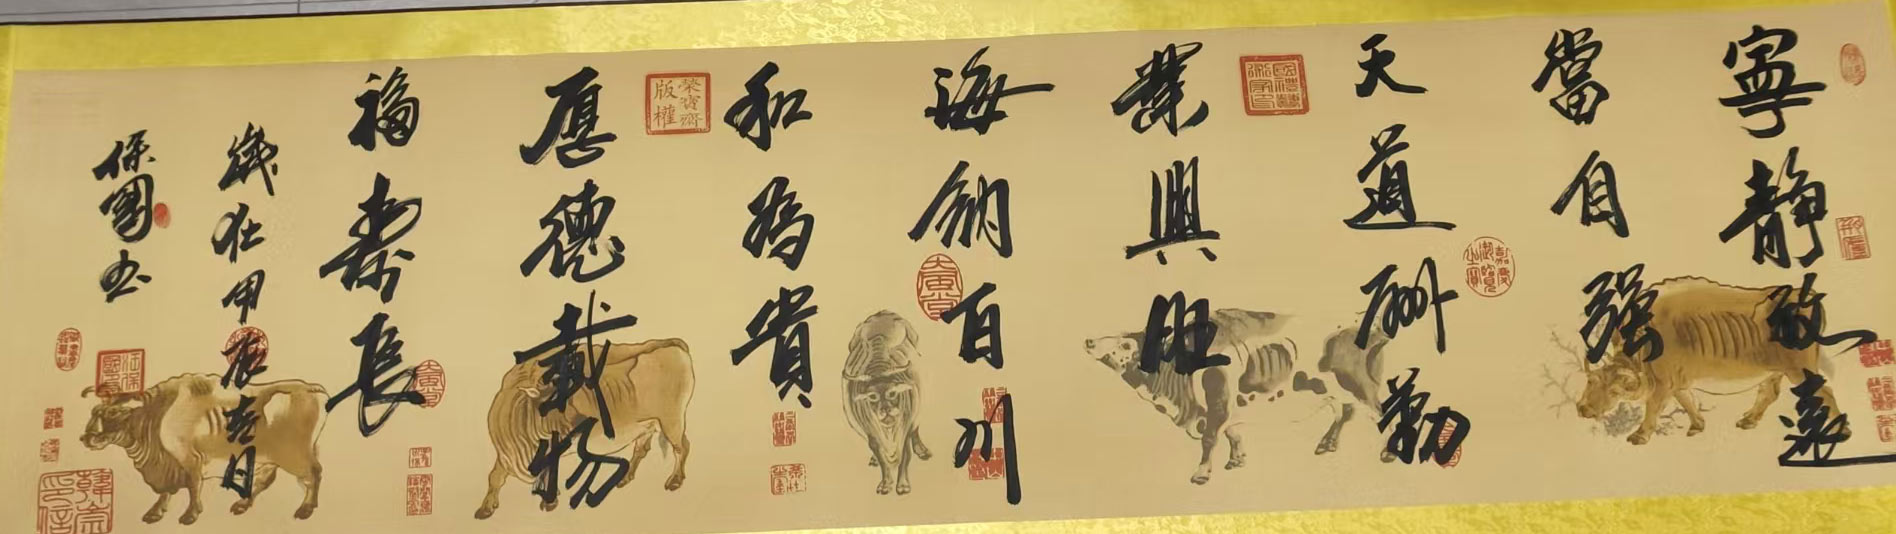 寧靜致遠
當自强
天道酬勤
業興旺
海納百川
和為貴
厚德載物
福壽長
歲在甲辰月
保國書
榮寶齋
版權
嘉慶御覽之寶